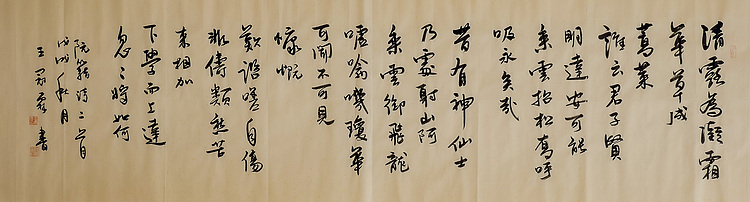 清露為凝霜
華草成
蒿萊
誰云君子賢
明達安可能
乘雲招松喬呼
吸永矣哉
昔有神仙士
乃處射山阿
乘雲御飛龍
噓噏嘰瓊華
可聞不可見
慷慨
歎諮嗟自傷
非儔類愁苦
來相加
下學而上達
忽々將如何
阮籍诗二首
戊戌秋月
王 書